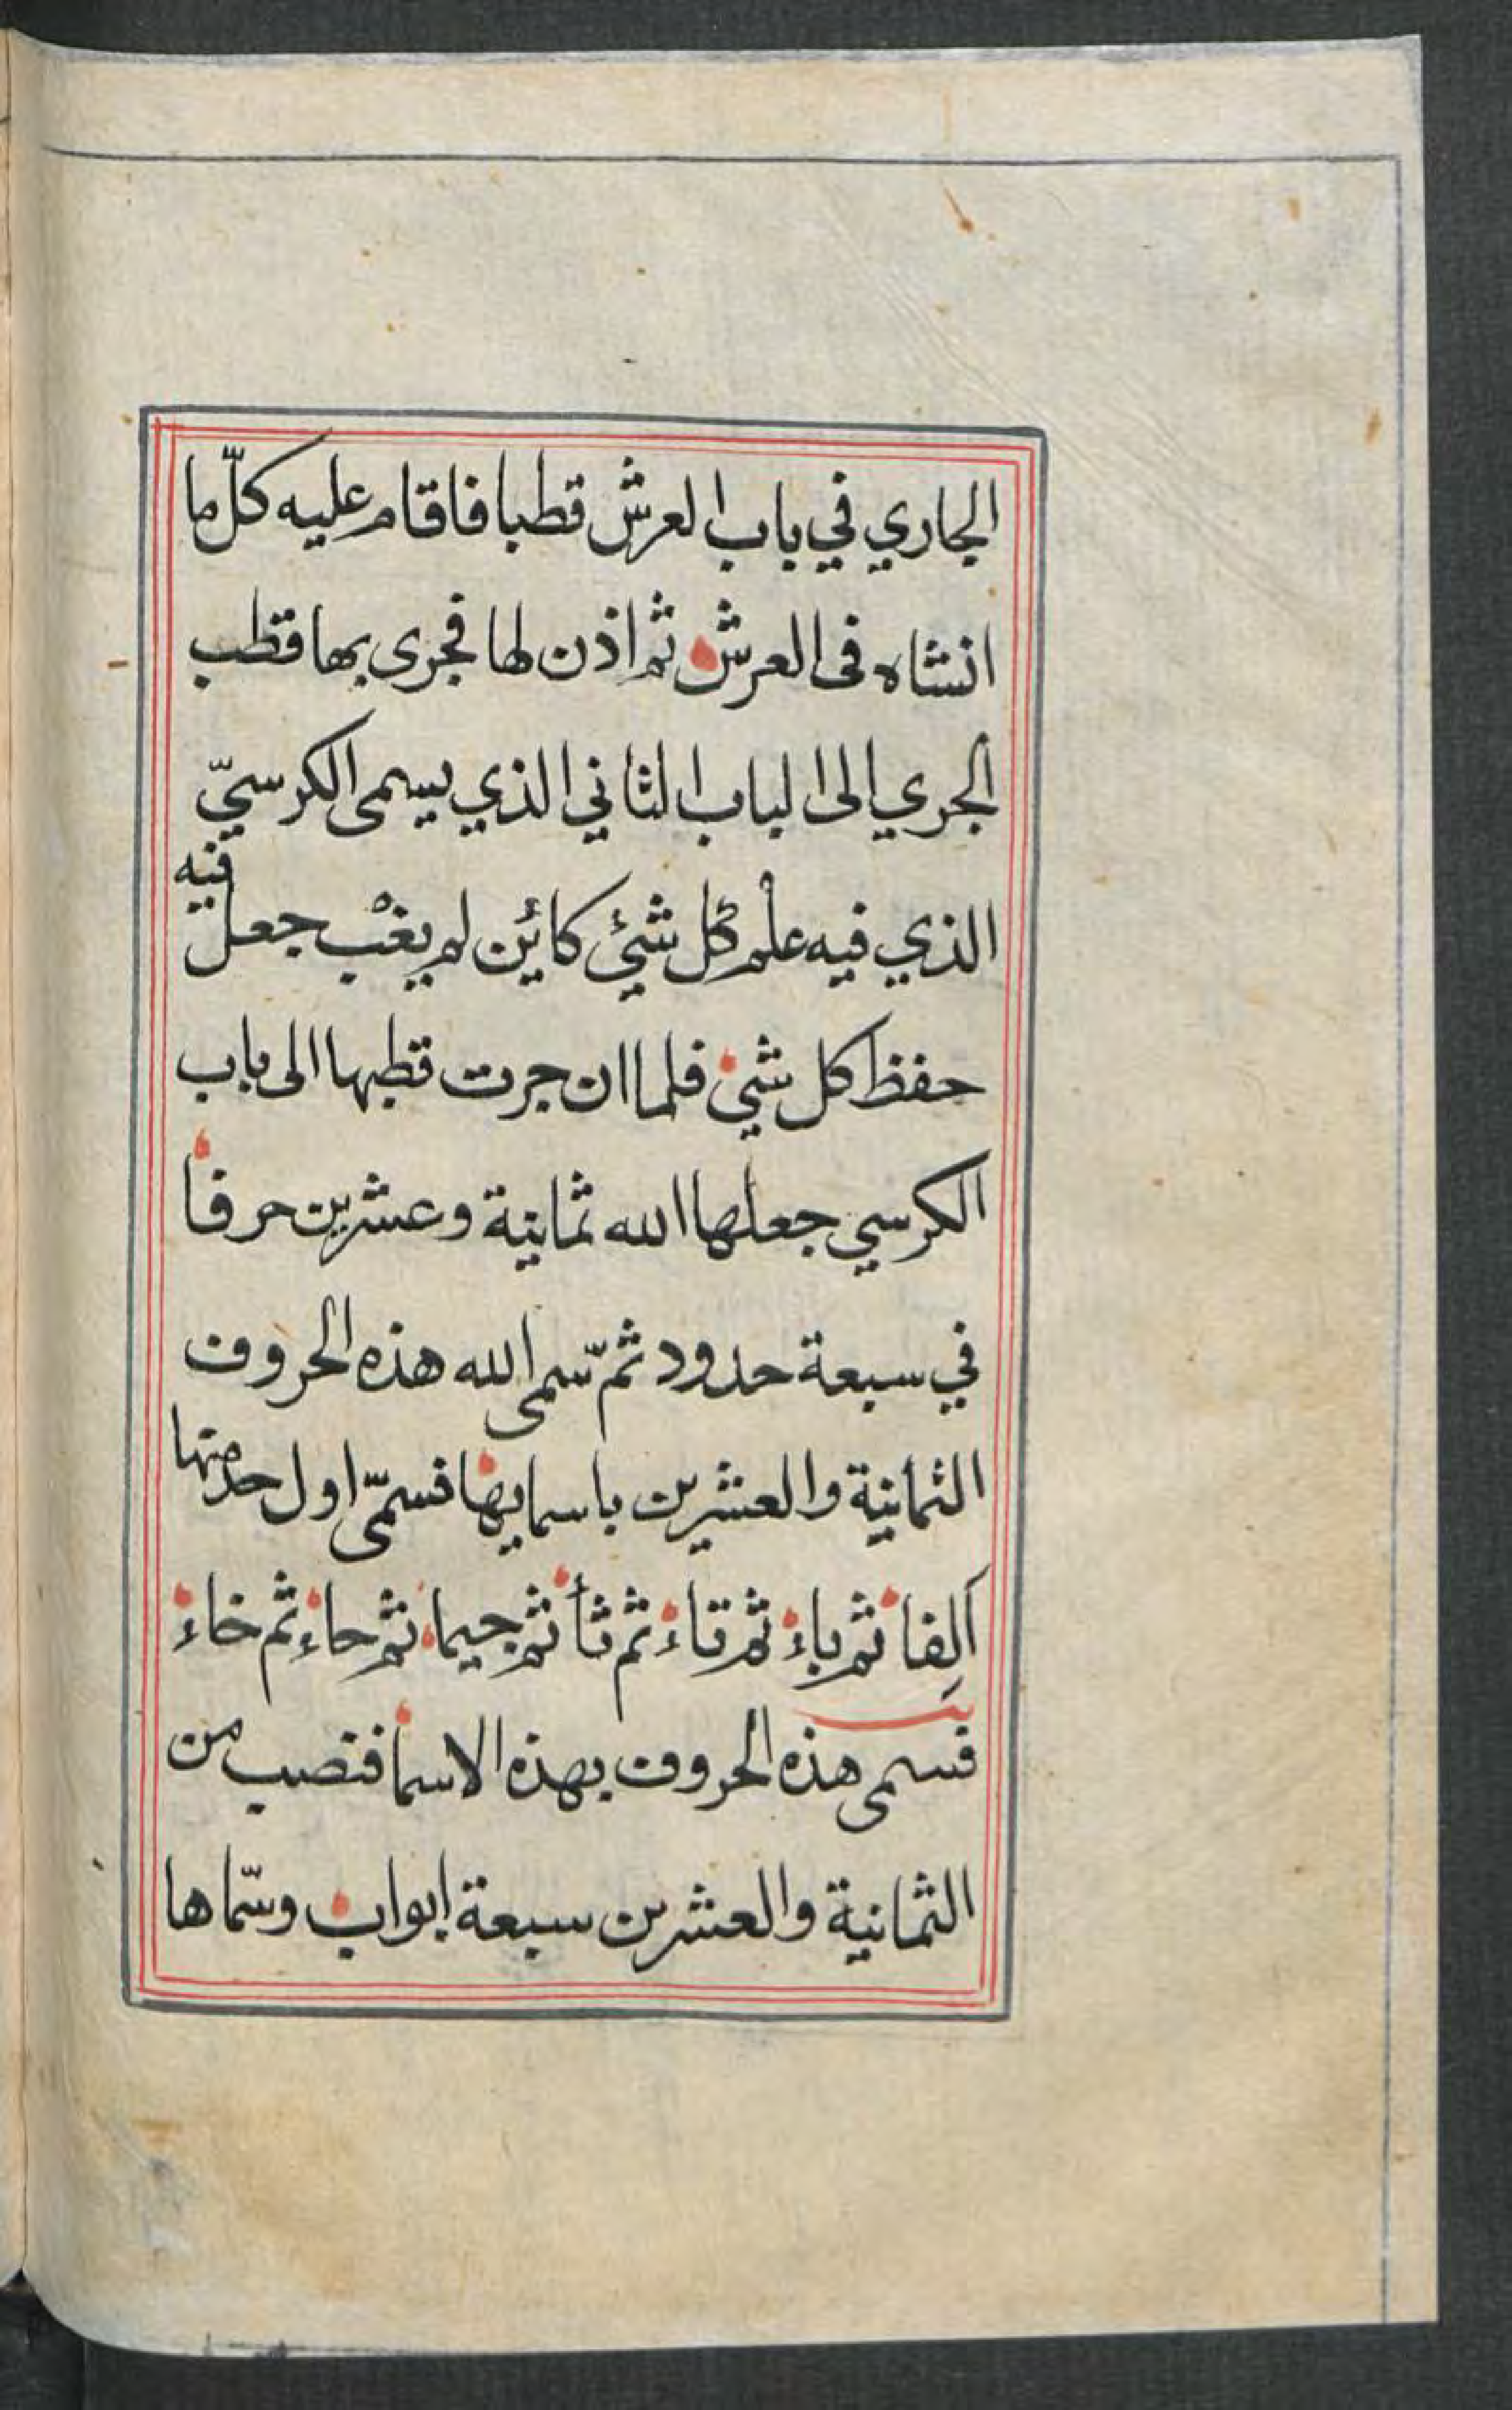 الجاري في باب العرش قطبا فاقام عليه كلّ ما
انشاه فى العرش ثم اذن لها فجرى بها قطب
الجري الى الباب الثاني الذي يسمى الكرسيّ
الذي فيه علم كل شئ كائن لم يغب جعل فيه
حفظ كل شي فلما ان جرت قطبها الى باب
الكرسي جعلها الله ثمانية وعشرين حرفا
في سبعة حدود ثم سمى الله هذه الحروف
الثمانية والعشرين باسمايها فسمّى اول حد منها
الفا ثم باء ثم تاء ثم ثا ثم جيما ثم حاء ثم خاء
فسمى هذه الحروف بهذه الاسما فنصب من
الثمانية والعشرين سبعة ابواب وسمّاها